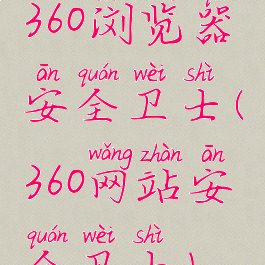 360浏览器
ān quán wèi shì
安全卫士(
wǎng zhàn ān
360网站安
quán wèi shì
全卫士)